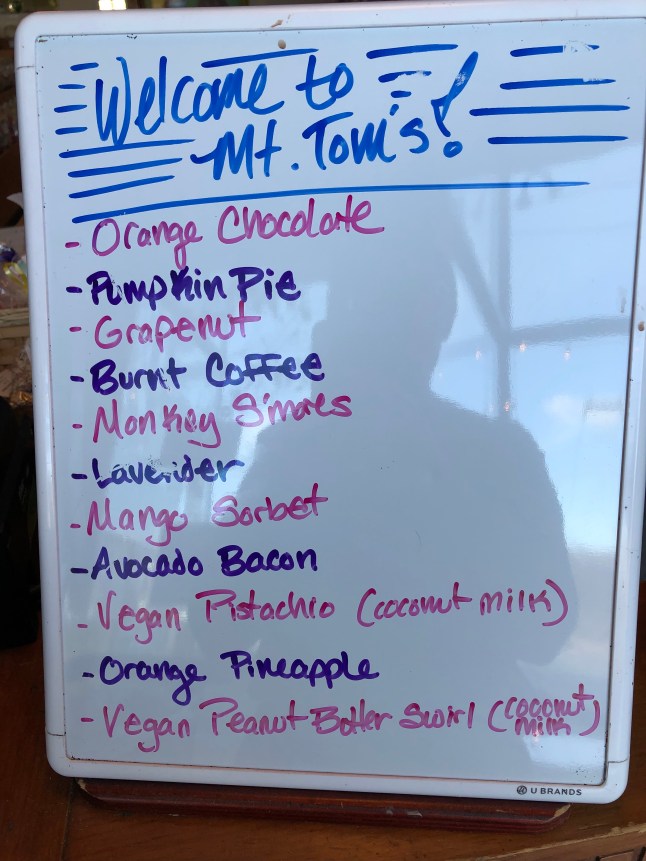 Welcome to
Mt. Tom's!
- Orange Chocolate
- Pumpkin Pie
- Grapenut
- Burnt Coffee
- Monkey S'mores
- Lavender
- Mango Sorbet
- Avocado Bacon
- Vegan Pistachio (coconut milk)
- Orange Pineapple
- Vegan Peanut Butter Swirl (coconut milk)
U BRANDS